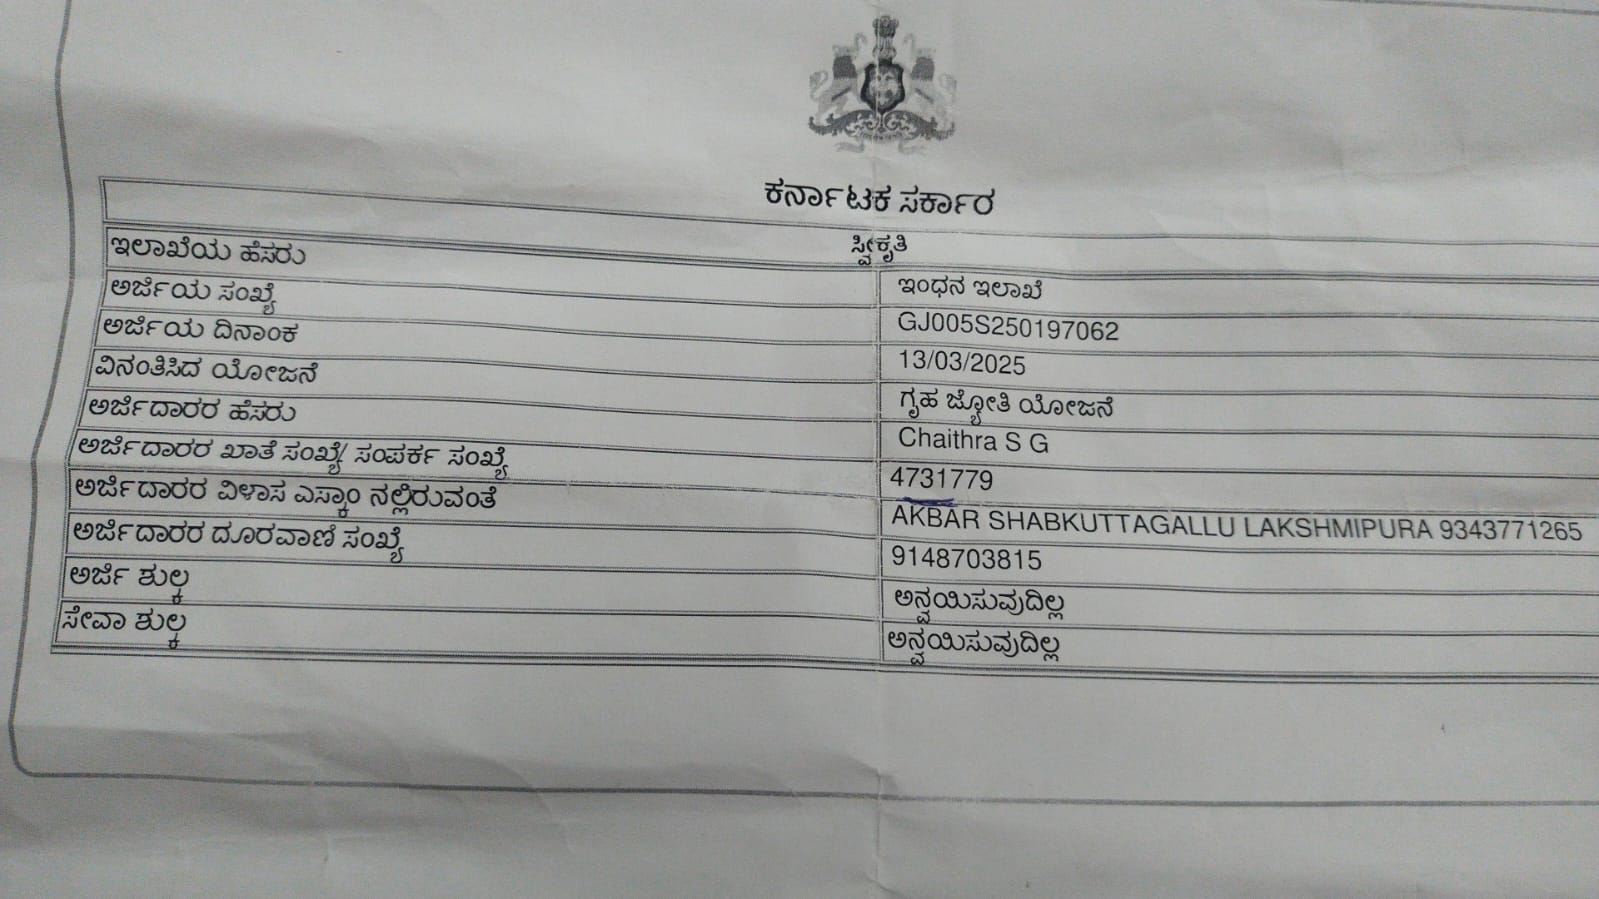 ಕರ್ನಾಟಕ ಸರ್ಕಾರ
ಸ್ವೀಕೃತಿ
ಇಲಾಖೆಯ ಹೆಸರು ಇಂಧನ ಇಲಾಖೆ
ಅರ್ಜಿಯ ಸಂಖ್ಯೆ GJ005S250197062
ಅರ್ಜಿಯ ದಿನಾಂಕ 13/03/2025
ವಿನಂತಿಸಿದ ಯೋಜನೆ ಗೃಹ ಜ್ಯೋತಿ ಯೋಜನೆ
ಅರ್ಜಿದಾರರ ಹೆಸರು Chaithra S G
ಅರ್ಜಿದಾರರ ಖಾತೆ ಸಂಖ್ಯೆ/ ಸಂಪರ್ಕ ಸಂಖ್ಯೆ 4731779
ಅರ್ಜಿದಾರರ ವಿಳಾಸ ಎಸ್ಕಾಂ ನಲ್ಲಿರುವಂತೆ AKBAR SHABKUTTAGALLU LAKSHMIPURA 9343771265
ಅರ್ಜಿದಾರರ ದೂರವಾಣಿ ಸಂಖ್ಯೆ 9148703815
ಅರ್ಜಿ ಶುಲ್ಕ ಅನ್ವಯಿಸುವುದಿಲ್ಲ
ಸೇವಾ ಶುಲ್ಕ ಅನ್ವಯಿಸುವುದಿಲ್ಲ